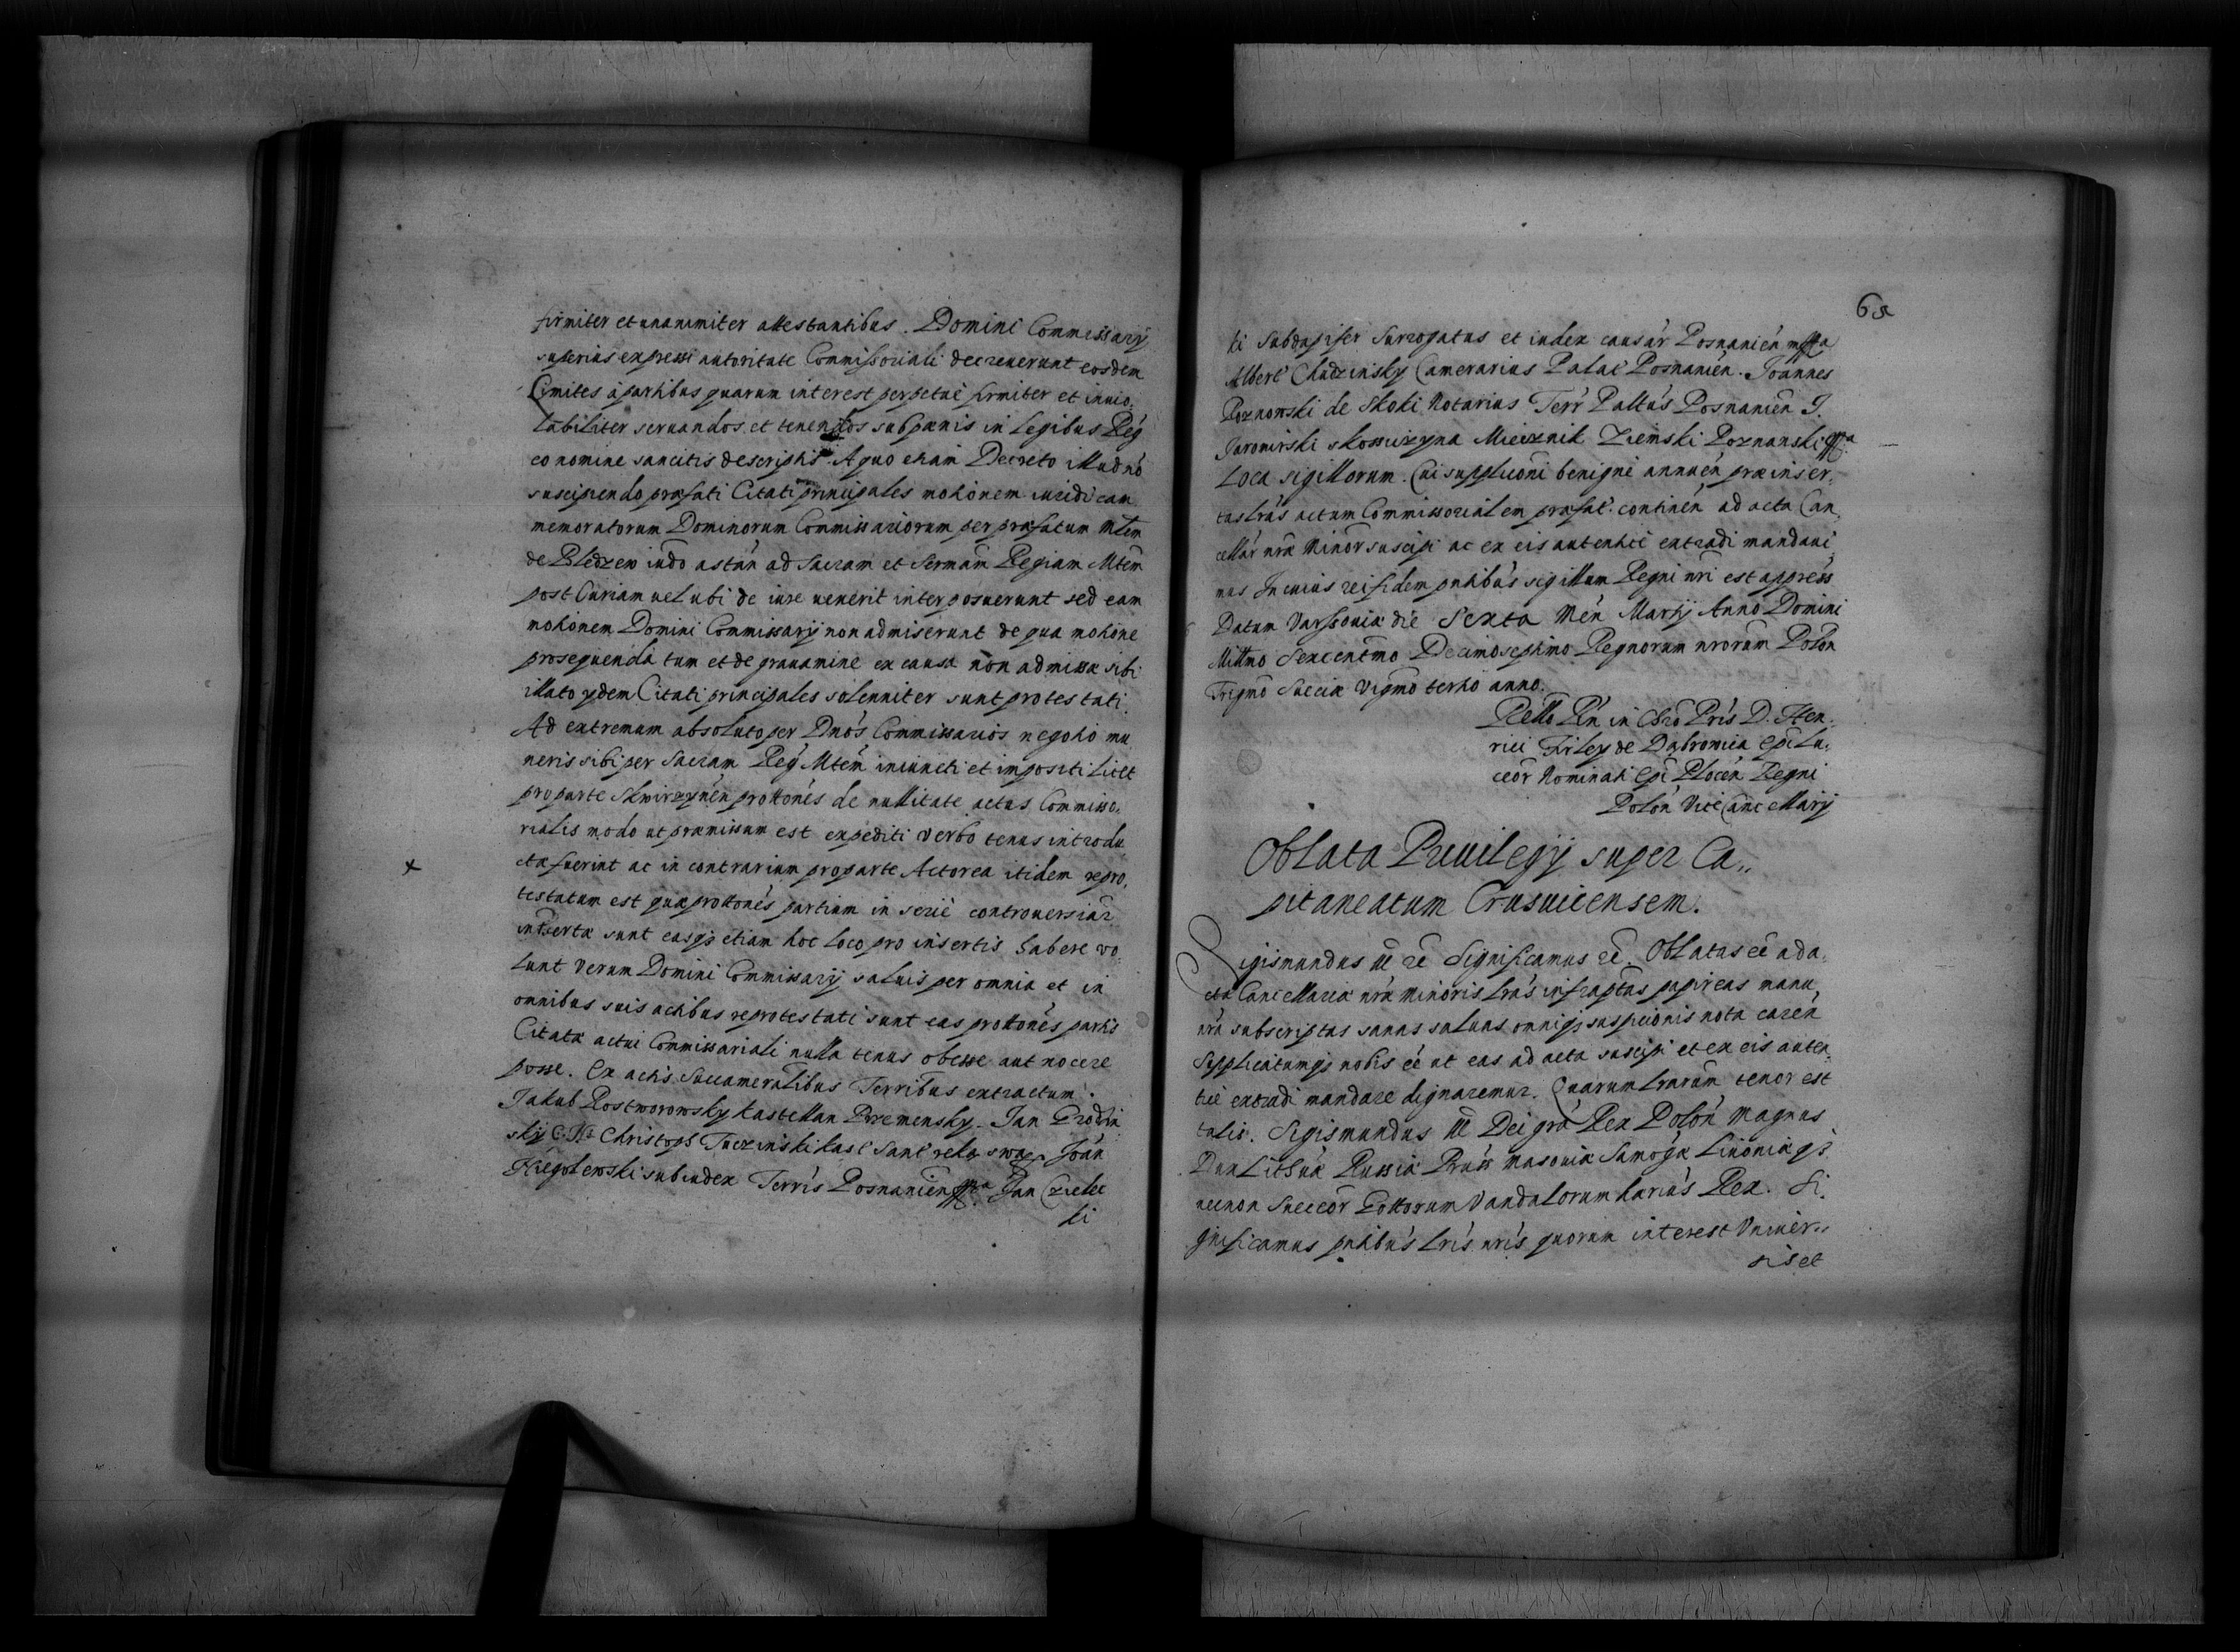 firmiter et unanimiter attestantibus. Domini Commissarij
superius expressi autoritate Commissoriali decreuerunt eosdem
limites à partibus quarum interest perpetuè firmiter et inuio,
labiliter seruandos et tenendos subpænis in legibus Reg
eo nomine sancitis descriptis. A quo etiam Decreto illud nõ
suscipiendo præfati Citati principales motionem iuridicam
memoratorum Dominorum Commissariorum per præfatum Mtem
de Bledzew iudo astan ad Sacram et Sermam Regiam Mtem
post Curiam uel ubi de iure uenerit interposuerunt sed eam
motionem Domini Commissarij non admiserunt de qua motione
prosequenda tum et de grauamine ex causa non admissæ sibi
illato ydem Citati principales solenniter sunt protestati.
Ad extremum absoluto per Dnos Commissarios negotio mu
neris sibi per Sacram Reg Mtem iniuncti et impositi licet
pro parte Skwirzynen prottones de nullitate actus Commisso,
rialis modo ut præmissum est expediti verbo tenus introdu
cta fuerint ac in contrarium pro parte Actorea itidem repro,
testatum est quæ prottones partium in serie controuersiar
inserta sunt easq3 etiam hoc loco pro insertis habere vo
lunt Verum Domini Commissarij saluis per omnia et in
omnibus suis actibus reprotestati sunt eas prottones partis
Citatæ actui Commissariali nulla tenus obesse aut nocere
posse. Ex actis Succameralibus Terribus extractum.
Jakub Rostworowsky kastellan Przemensky. Jan Grodzin
sky Christoph Tuczinski kast Sant reką swą Joan
Niegolewski subiudex Terris Posnanien mppa Jan Czele
ki
68
ki Subdapifer Surrogatus et iudex causar Posnanien mppa
Albert Chudzinsky Camerarius Palat Posnanien. Joannes
Roznowski de Skoki Notarius Terr Paltus Posnanien J.
Jaromirski skoszuszyna Miecznik Ziemski Poznanski mppa
Loca sigillorum. Cui supplicõni benignè annuen præinser,
tas lras actum Commissorialem præfat continen ad acta Can
cellar nræ Minor suscipi ac ex eis autentice extradi mandaui
mus In cuius rei fidem pntibus sigillum Regni nri est appress
Datum Varssouiæ die Sexta Men Martij Anno Domini
Millmo Sexcentmo Decimoseptimo Regnorum nrorum Polon
Trigmo Sueciæ Vigmo tertio anno.
Rello Rñ in Chro Pris D. Hen,
rici Firley de Dabrowica Epi Lu,
ceor Nominati Epi Plocen Regni
Polon Vice Cancellarij
Oblata Priuilegij super Ca,,
pitaneatum Crusuicensem.
Sigismundus III rē Significamus rē. Oblatas eē ad a,
cta Cancellariæ nræ Minoris lras infrascptas papireas manu
nra subscriptas sanas saluas omniq3 suspicionis nota caren
Supplicatumq3 nobis eē ut eas ad acta suscipi et ex eis auten
tice extradi mandare dignaremur. Quarum lrarum tenor est
talis. Sigismundus III Dei gra Rex Polon Magnus
Dux Lithuæ Russiæ Pruss Masouiæ Samogæ Liuoniæ q3
necnon Sueccor Gottorum Vandalorum hærius Rex. Si,
gnificamus pntibus lris nris quorum interest Vniuer,,
sis et